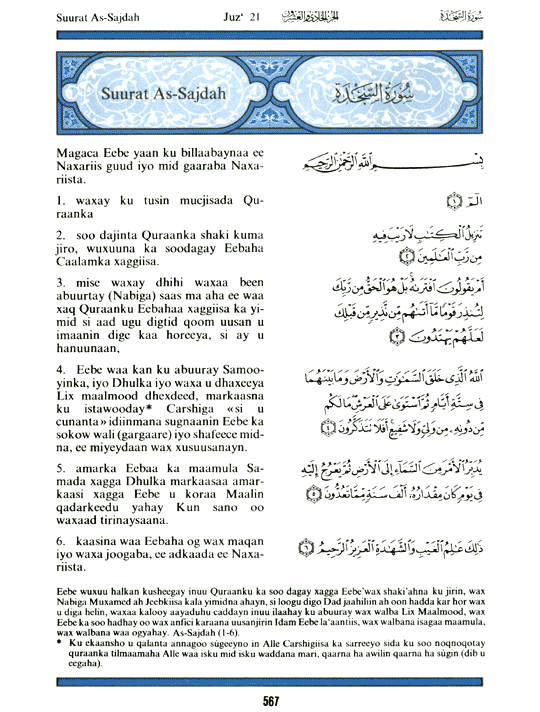 Suurat As-Sajdah Juz' 21 الجزء الحادي والعشرون سُورَةُ السَّجْدَة
Suurat As-Sajdah سُورَةُ السَّجْدَة
Magaca Eebe yaan ku billaabaynaa ee
Naxariis guud iyo mid gaaraba Naxa-
riista.
بِسْمِ اللَّهِ الرَّحْمَٰنِ الرَّحِيمِ
1. waxay ku tusin mucjisada Qu-
raanka
الٓمٓ ١
2. soo dajinta Quraanka shaki kuma
jiro, wuxuuna ka soodagay Eebaha
Caalamka xaggiisa.
تَنزِيلُ الْكِتَٰبِ لَا رَيْبَ فِيهِ
مِن رَّبِّ الْعَٰلَمِينَ ٢
3. mise waxay dhihi waxaa been
abuurtay (Nabiga) saas ma aha ee waa
xaq Quraanku Eebahaa xaggiisa ka yi-
mid si aad ugu digtid qoom uusan u
imaanin dige kaa horeeya, si ay u
hanuunaan,
أَمْ يَقُولُونَ افْتَرَىٰهُ بَلْ هُوَ الْحَقُّ مِن رَّبِّكَ
لِتُنذِرَ قَوْمًا مَّا أَتَىٰهُم مِّن نَّذِيرٍ مِّن قَبْلِكَ
لَعَلَّهُمْ يَهْتَدُونَ ٣
4. Eebe waa kan ku abuuray Samoo-
yinka, iyo Dhulka iyo waxa u dhaxeeya
Lix maalmood dhexdeed, markaasna
ku istawooday* Carshiga «si u
cunanta» idiinmana sugnaanin Eebe ka
sokow wali (gargaare) iyo shafeece mid-
na, ee miyeydaan wax xusuusanayn.
اللَّهُ الَّذِي خَلَقَ السَّمَٰوَٰتِ وَالْأَرْضَ وَمَا بَيْنَهُمَا
فِي سِتَّةِ أَيَّامٍ ثُمَّ اسْتَوَىٰ عَلَى الْعَرْشِ مَا لَكُم
مِّن دُونِهِ مِن وَلِيٍّ وَلَا شَفِيعٍ أَفَلَا تَتَذَكَّرُونَ ٤
5. amarka Eebaa ka maamula Sa-
mada xagga Dhulka markaasaa amar-
kaasi xagga Eebe u koraa Maalin
qadarkeedu yahay Kun sano oo
waxaad tirinaysaana.
يُدَبِّرُ الْأَمْرَ مِنَ السَّمَاءِ إِلَى الْأَرْضِ ثُمَّ يَعْرُجُ إِلَيْهِ
فِي يَوْمٍ كَانَ مِقْدَارُهُ أَلْفَ سَنَةٍ مِّمَّا تَعُدُّونَ ٥
6. kaasina waa Eebaha og wax maqan
iyo waxa joogaba, ee adkaada ee Naxa-
riista.
ذَٰلِكَ عَٰلِمُ الْغَيْبِ وَالشَّهَٰدَةِ الْعَزِيزُ الرَّحِيمُ ٦
Eebe wuxuu halkan kusheegay inuu Quraanku ka soo dagay xagga Eebe'wax shaki'ahna ku jirin, wax
Nabiga Muxamed ah Jeebkiisa kala yimidna ahayn, si loogu digo Dad jaahilin ah oon hadda kar hor wax
u diga helin, waxaa kalooy aayaduhu caddayn inuu ilaahay ku abuuray wax walba Lix Maalmood, wax
Eebe ka soo hadhay oo wax anfici karaana uusanjirin Idam Eebe la'aantiis, wax walbana isagaa maamula,
wax walbana waa ogyahay. As-Sajdah (1-6).
* Ku ekaansho u qalanta annagoo sùgeeyno in Alle Carshigiisa ka sarreeyo sida ku soo noqnoqotay
quraanka tilmaamaha Alle waa isku mid isku waddana mari, qaarna ha awilin qaarna ha sùgin (dib u
eegaha).
567